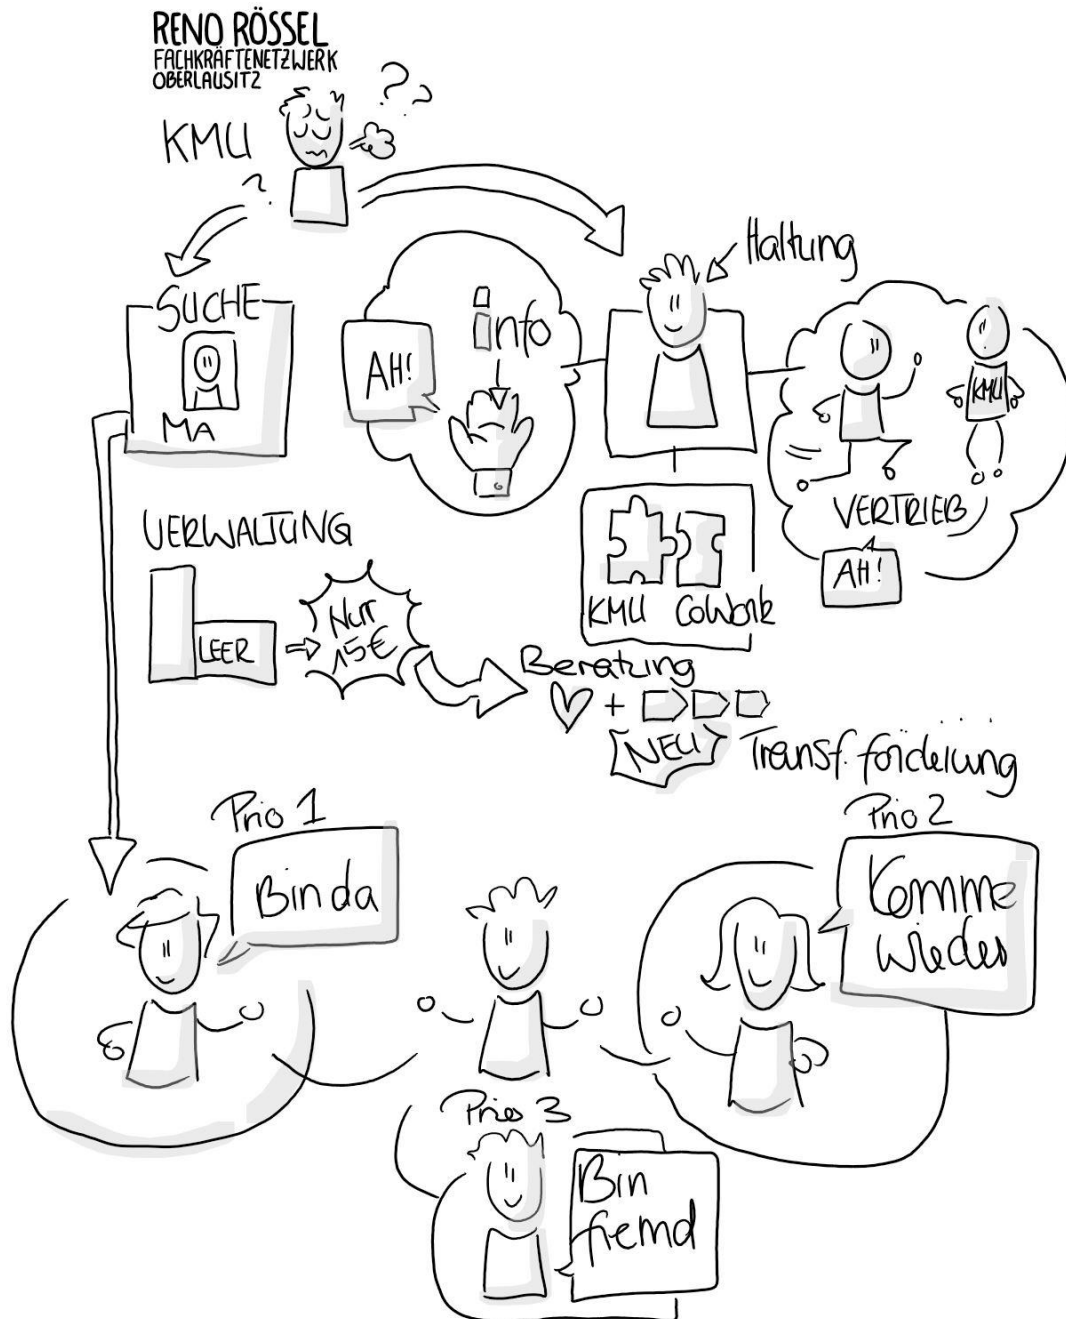 RENO RÖSSEL
FACHKRÄFTENETZWERK
OBERLAUSITZ
KMU
? ?
?
SUCHE
MA
AH!
info
Haltung
KMU
VERTRIEB
AH!
KMU CoWork
VERWALTUNG
LEER
Nur
15€
Beratung
+
NEU
Transf. förderung
Prio 1
Bin da
Prio 2
Komme
wieder
Prio 3
Bin
fremd